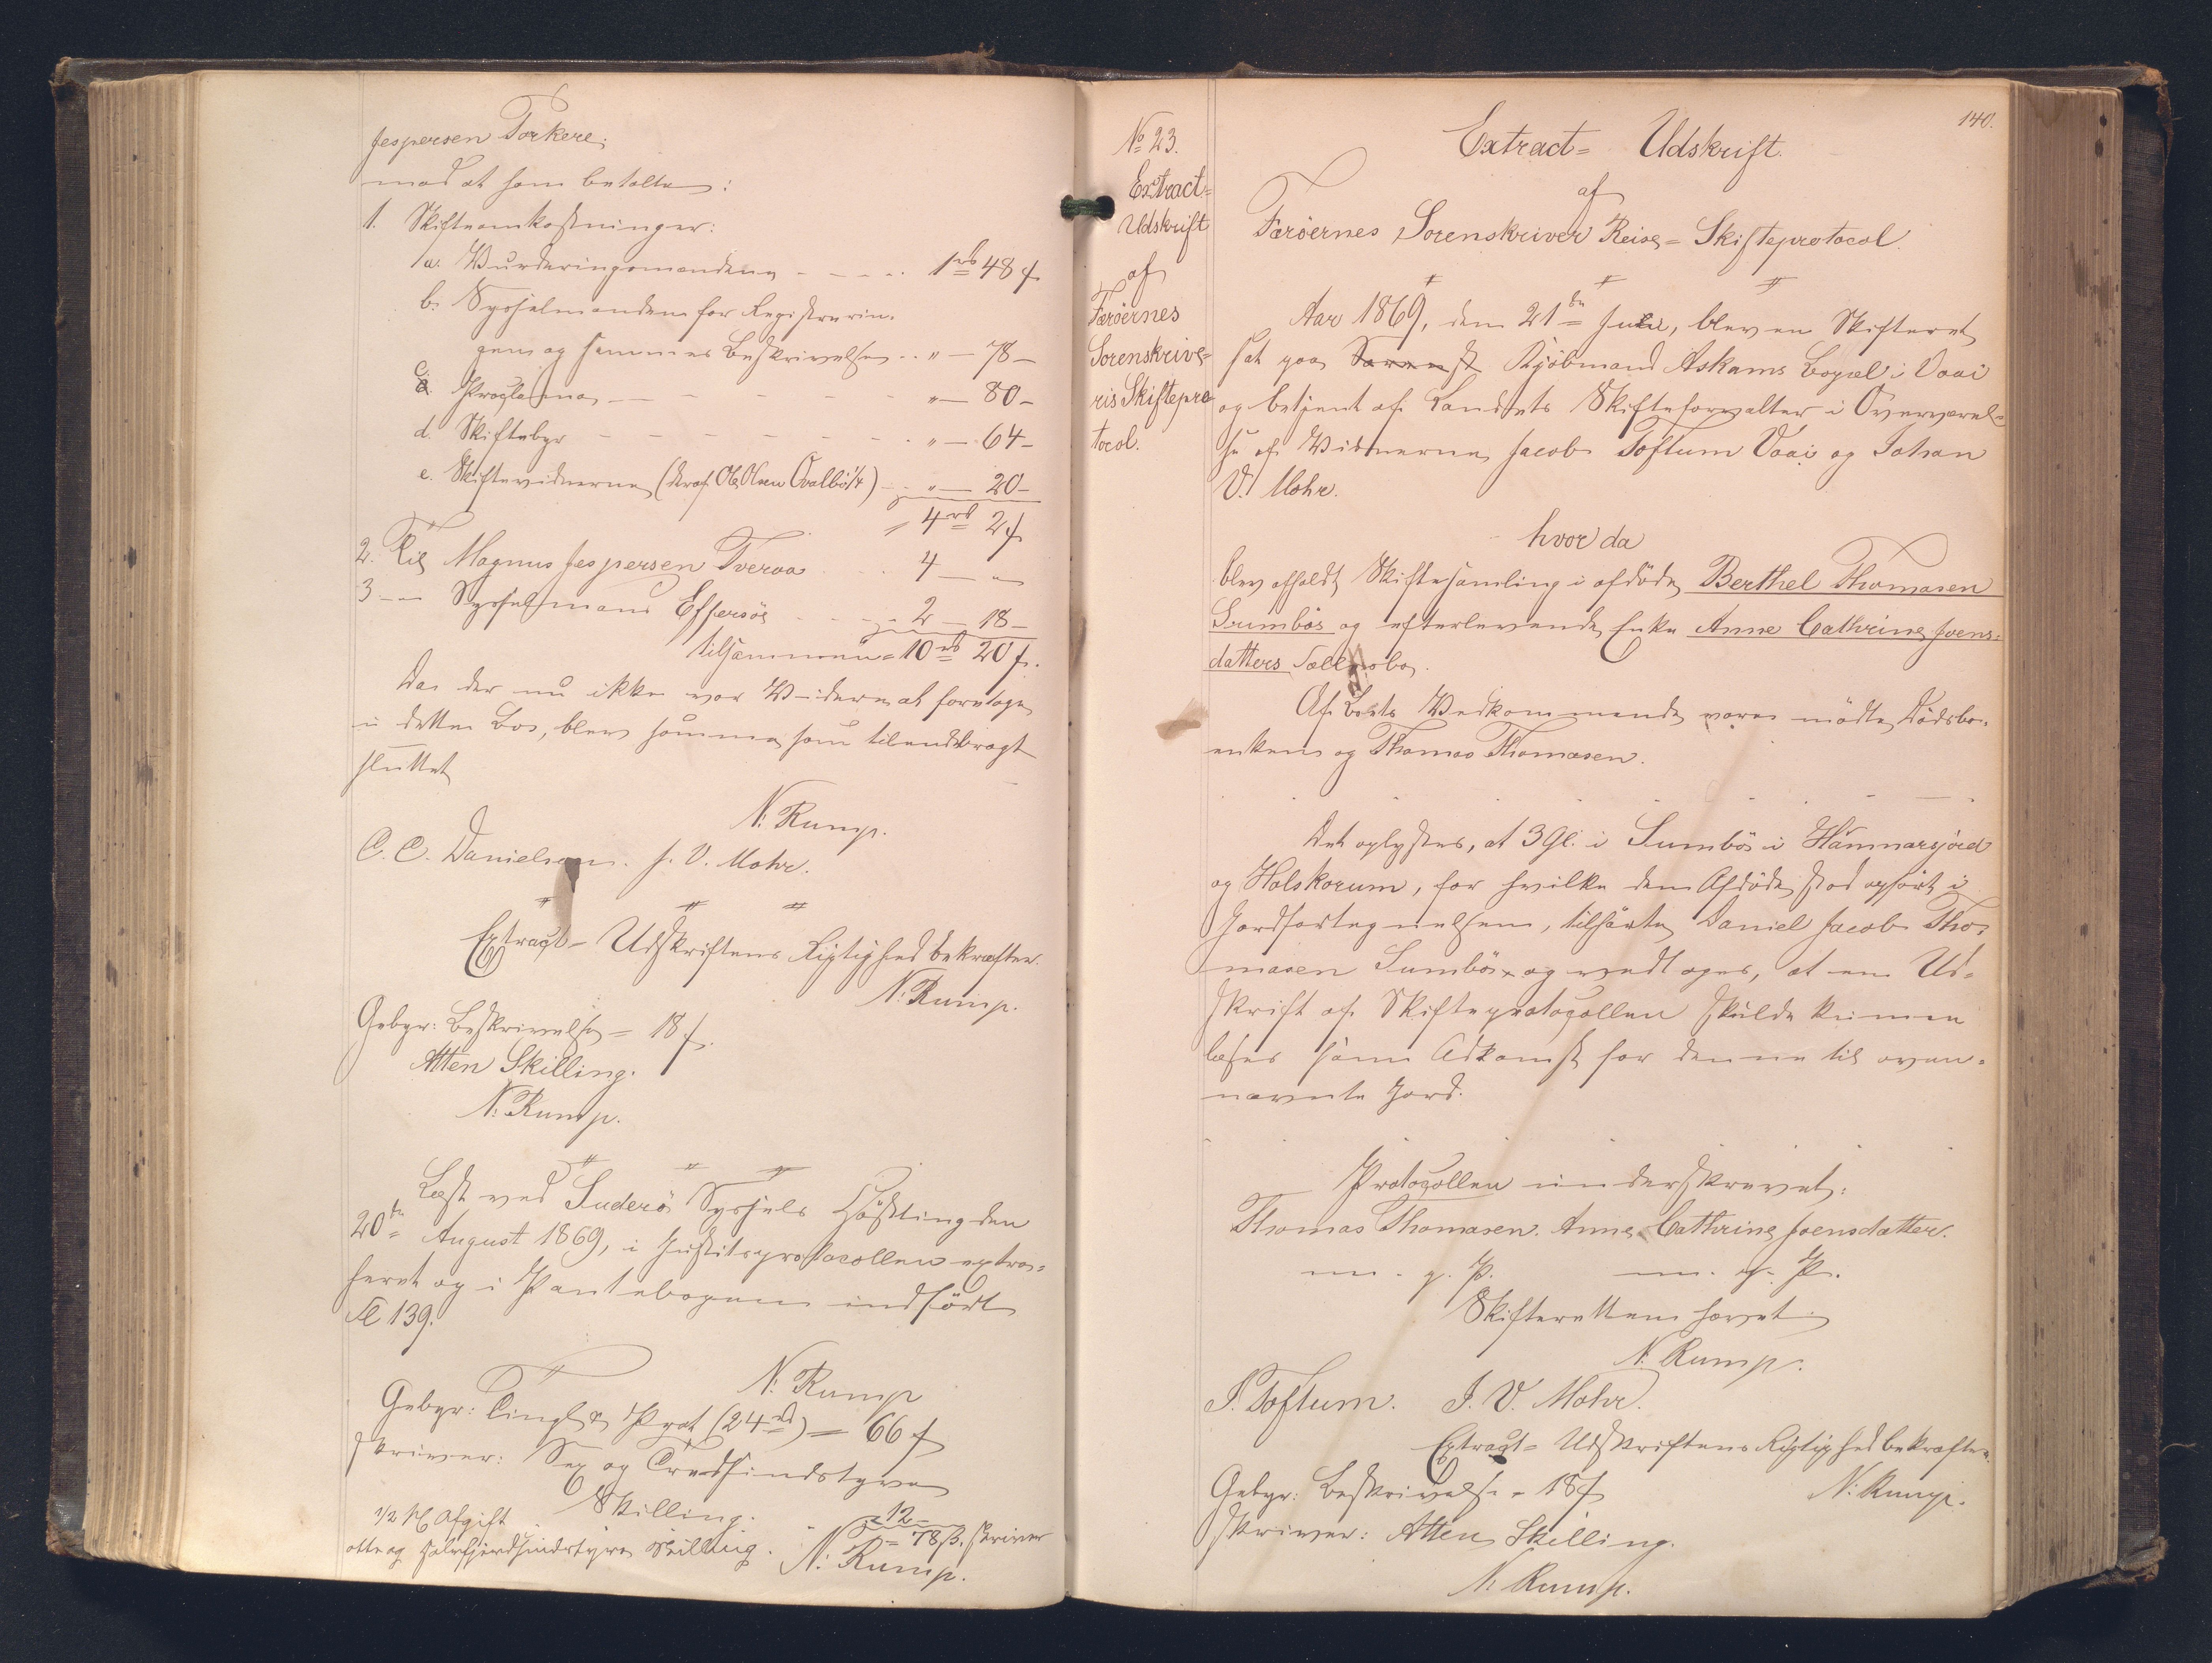 Jespersen Torkere;
mod at han betalte:
1. Skifteomkostninger:
a. Vurderingsmændene - - - - 1 rd 48 ſ
b. Sysselmanden for Registrerin-
gen og sammes Beskrivelse . . " — 78 —
c. Proclama — - - - - - " — 80 —
d. Skiftebyr - - - - - - - . " — 64 —
e. Skiftevidnerne (deraf Ole Olsen Qvalbö ¼) - - " — 20 —
= 4 rd 2 ſ
2. Til Magnus Jespersen Tveraa . . 4 — "
3 — " Sysselmand Effersöe - - - 2 — 18 —
tilsammen = 10 rd 20 ſ.
Da der nu ikke var Videre at foretage
i dette Bo, blev samme som tilendebragt
sluttet
N. Rump.
C. C. Danielsen. J. V. Mohr.
Extract-Udskriftens Rigtighed bekræfter.
N. Rump.
Gebyr: Beskrivelse = 18 ſ.
Atten Skilling.
N. Rump.
Læst ved Suderö Syssels Höstting den
20de August 1869, i Justitsprotocollen extra-
heret og i Pantebogen indført
Fol 139.
N. Rump
Gebyr: Tingl. & Prot (24 rd) = 66 ſ
skriver: Sex og Tredsindstyve
Skilling.
½ % Afgift 12 —
= 78 ß. skriver
otte og halvfjerdsindstyve Skilling. N. Rump.
140.
No 23.
Extract-
Udskrift
af
Færöernes
Sorenskrive-
ris Skiftepro-
tocol.
Extract- Udskrift.
af
Færöernes Sorenskriver Reise- Skifteprotocol.
Aar 1869, den 21de Juli, blev en Skifteret
sat paa Kjöbmand Askams Bopæl i Vaai
og betjent af Landets Skifteforvalter i Overværel-
se af Vidnerne Jacob Toftum Vaai og Johan
V. Mohr.
hvor da
blev afholdt Skiftesamling i afdöde Berthel Thomasen
Sumbös og efterlevende Enke Anne Cathrine Joens-
datters Fællesbo.
Af Boets Vedkommende vare mödte Dödsbo-
enken og Thomas Thomasen.
Det oplystes, at 3 Gl. i Sumbö i Hamnarsjörd
og Holskorum, for hvilke den Afdöde stod opfört i
Jordfortegnelsen, tilhörte Daniel Jacob Tho-
masen Sumbö og vedtoges, at en Ud-
skrift af Skifteprotocollen skulde kunne
læses som Adkomst for denne til oven-
nævnte Jord.
Protocollen underskrevet:
Thomas Thomasen. Anne Cathrine Joensdatter.
m. p. P. m. p. P.
Skifteretten hævet
N. Rump.
J. Toftum. J. V. Mohr.
Extract- Udskriftens Rigtighed bekræfter.
Gebyr: Beskrivelse = 18 ſ N. Rump.
skriver: Atten Skilling.
N. Rump.